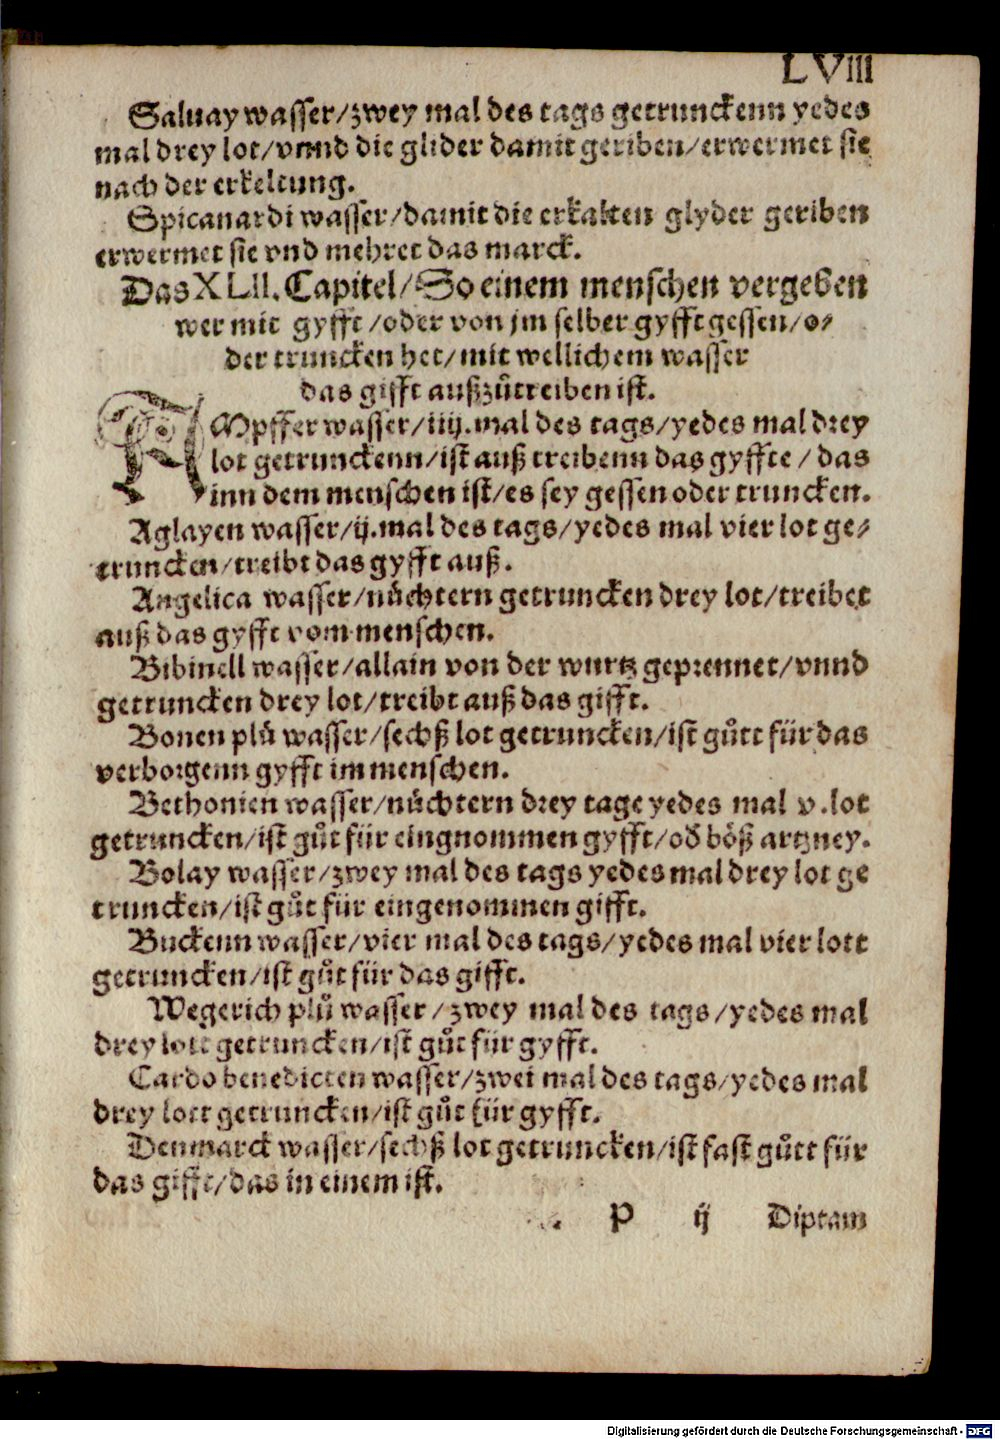 LVIII
Saluay wasser/zwey mal des tags getrunckenn yedes
mal drey lot/vnnd die glider damit geriben/erwermet sie
nach der erkeltung.
Spicanardi wasser/damit die erkalten glyder geriben
erwermet sie vnd mehret das marck.
Das XLII. Capitel/So einem menschen vergeben
wer mit gyfft/oder von jm selber gyfft gessen/o⸗
der truncken het/mit wellichem wasser
das gifft außzůtreiben ist.
AMpffer wasser/iiij.mal des tags/yedes mal drey
lot getrunckenn/ist auß treibenn das gyffte/das
inn dem menschen ist/es sey gessen oder truncken.
Aglayen wasser/ij.mal des tags/yedes mal vier lot ge⸗
truncken/treibt das gyfft auß.
Angelica wasser/nůchtern getruncken drey lot/treibet
auß das gyfft vom menschen.
Bibinell wasser/allain von der wurtz geprennet/vnnd
getruncken drey lot/treibt auß das gifft.
Bonen plů wasser/sechß lot getruncken/ist gůtt für das
verborgenn gyfft im menschen.
Bethonien wasser/nůchtern drey tage yedes mal v.lot
getruncken/ist gůt für eingnommen gyfft/od̕ böß artzney.
Bolay wasser/zwey mal des tags yedes mal drey lot ge
truncken/ist gůt für eingenommen gifft.
Buckenn wasser/vier mal des tags/yedes mal vier lott
getruncken/ist gůt für das gifft.
Wegerich plů wasser/zwey mal des tags/yedes mal
drey lott getruncken/ist gůt für gyfft.
Cardo benedicten wasser/zwei mal des tags/yedes mal
drey lott getruncken/ist gůt für gyfft.
Denmarck wasser/sechß lot getruncken/ist fast gůtt für
das gifft/das in einem ist.
P ij Diptam
Digitalisierung gefördert durch die Deutsche Forschungsgemeinschaft - DFG